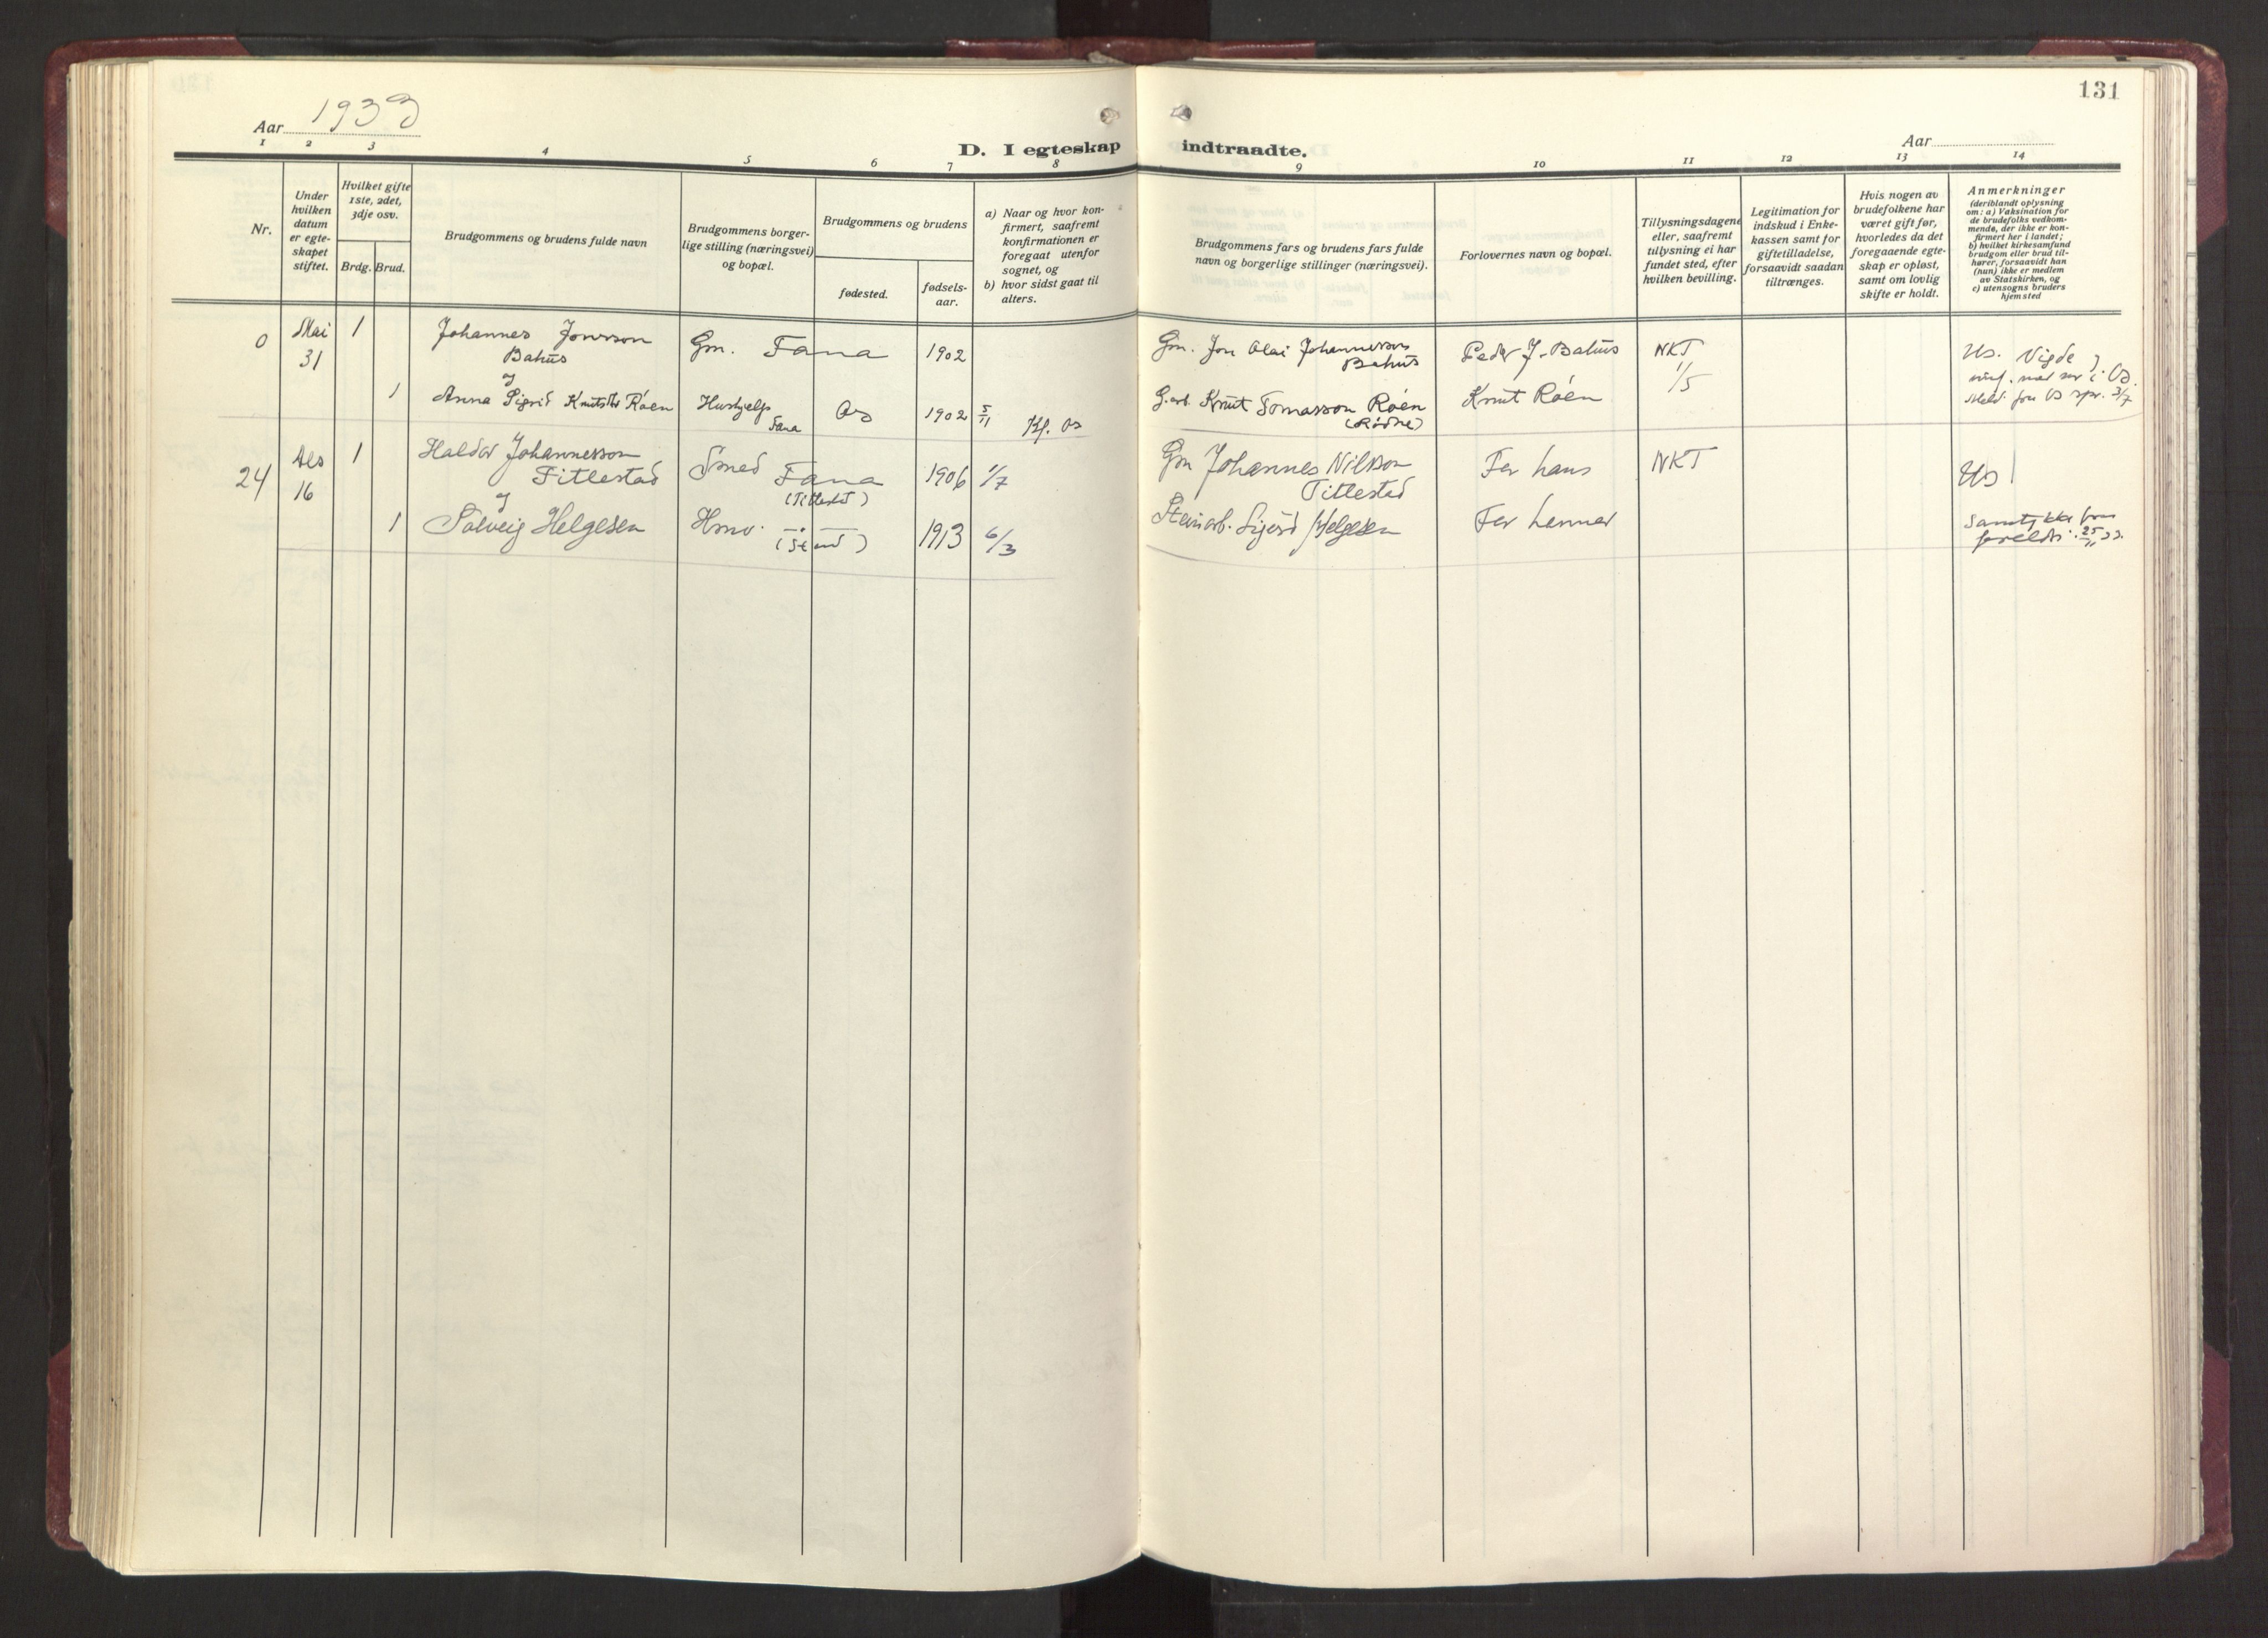 131
Aar 1933
Aar
D. I egteskap indtraadte.
1 2 3 4 5 6 7 8 9 10 11 12 13 14
Nr.
Under
hvilken
datum
er egte-
skapet
stiftet.
Hvilket gifte
1ste, 2det,
3dje osv.
Brdg.
Brud.
Brudgommens og brudens fulde navn
Brudgommens borger-
lige stilling (næringsvei)
og bopæl.
Brudgommens og brudens
fødested.
fødsels-
aar.
a) Naar og hvor kon-
firmert, saafremt
konfirmationen er
foregaat utenfor
sognet, og
b) hvor sidst gaat til
alters.
Brudgommens fars og brudens fars fulde
navn og borgerlige stillinger (næringsvei).
Forlovernes navn og bopæl.
Tillysningsdagene
eller, saafremt
tillysning ei har
fundet sted, efter
hvilken bevilling.
Legitimation for
indskud i Enke-
kassen samt for
giftetilladelse,
forsaavidt saadan
tiltrænges.
Hvis nogen av
brudefolkene har
været gift før,
hvorledes da det
foregaaende egte-
skap er opløst,
samt om lovlig
skifte er holdt.
Anmerkninger
(deriblandt oplysning
om: a) Vaksination for
de brudefolks vedkom-
mende, der ikke er kon-
firmert her i landet;
b) hvilket kirkesamfund
brudgom eller brud til-
hører, forsaavidt han
(hun) ikke er medlem
av Statskirken, og
c) utensogns bruders
hjemsted
0
Mai
31
1
Johannes Jonsson
Bahus
Gm. Fana
1902
Gm. Jon Olai Johannesson
Bahus
Peder J. Bahus
NKT
1/5
Us. Vigde
i Os.
Meld. fra Os spr. 3/7
og
1
Anna Sigrid Knutsdtr Røen
Hushjelp
Fana
Os
1902
5/11
Kf. Os
G.arb. Knut Tomasson Røen
(Rødne)
Knut Røen
24
Des
16
1
Haldor Johannesson
Titlestad
Smed Fana
(Titlestad)
1906
1/7
Gm Johannes Nilsson
Titlestad
Far hans
NKT
Us
og
1
Solveig Helgesen
Hmv. — " —
(Stend)
1913
6/3
Steinarb. Sigurd Helgesen
Far hennar
Samtykke fra
foreldr. 25/11 33.